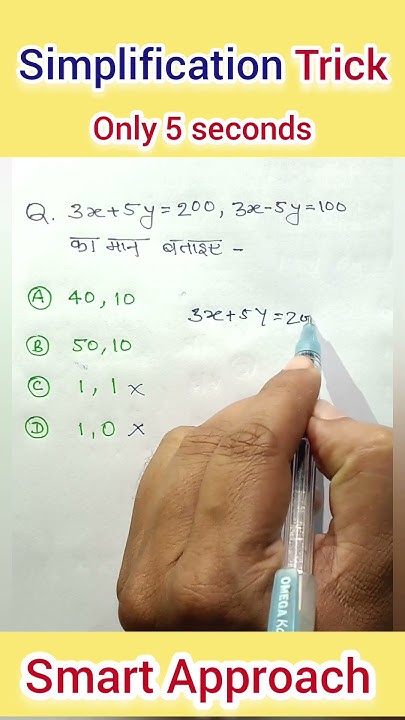 Simplification Trick
Only 5 seconds
Q. 3x+5y=200, 3x-5y=100
का मान बताइए -
A 40, 10
3x+5y=20
B 50, 10
C 1, 1 x
D 1, 0 x
OMEGA
Smart Approach